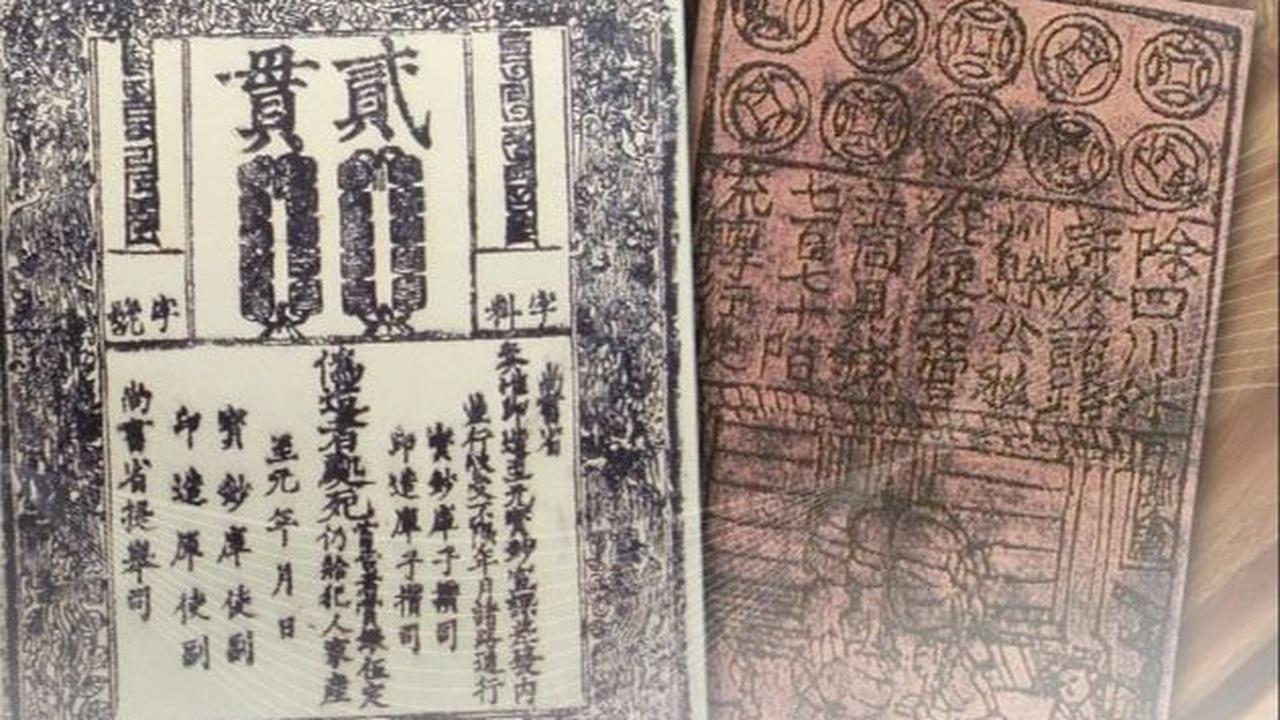 貳貫
字料
字號
尚書省
奏准印造至元寶鈔宣課差發內
並行收受不限年月諸路通行
寶鈔庫子攢司
印造庫子攢司
偽造者處死
首告者賞銀伍定
仍給犯人家產
至元年月日
寶鈔庫使副
印造庫使副
尚書省提舉司
除四川外
許於諸路
州縣公私
從便主管
並同見錢
七百七十陌
流轉行使